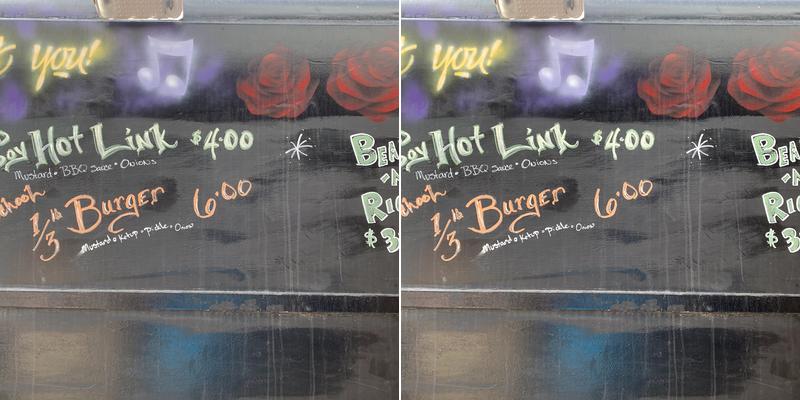 t you!
oy Hot Link $4.00
Mustard • BBQ Sauce • Onions
chool
1/3 lb Burger 6.00
Mustard • Ketup • pickle • Onion
BEA
RIC
$3
t you!
oy Hot Link $4.00
Mustard • BBQ Sauce • Onions
chool
1/3 lb Burger 6.00
Mustard • Ketup • pickle • Onion
BEA
RIC
$3